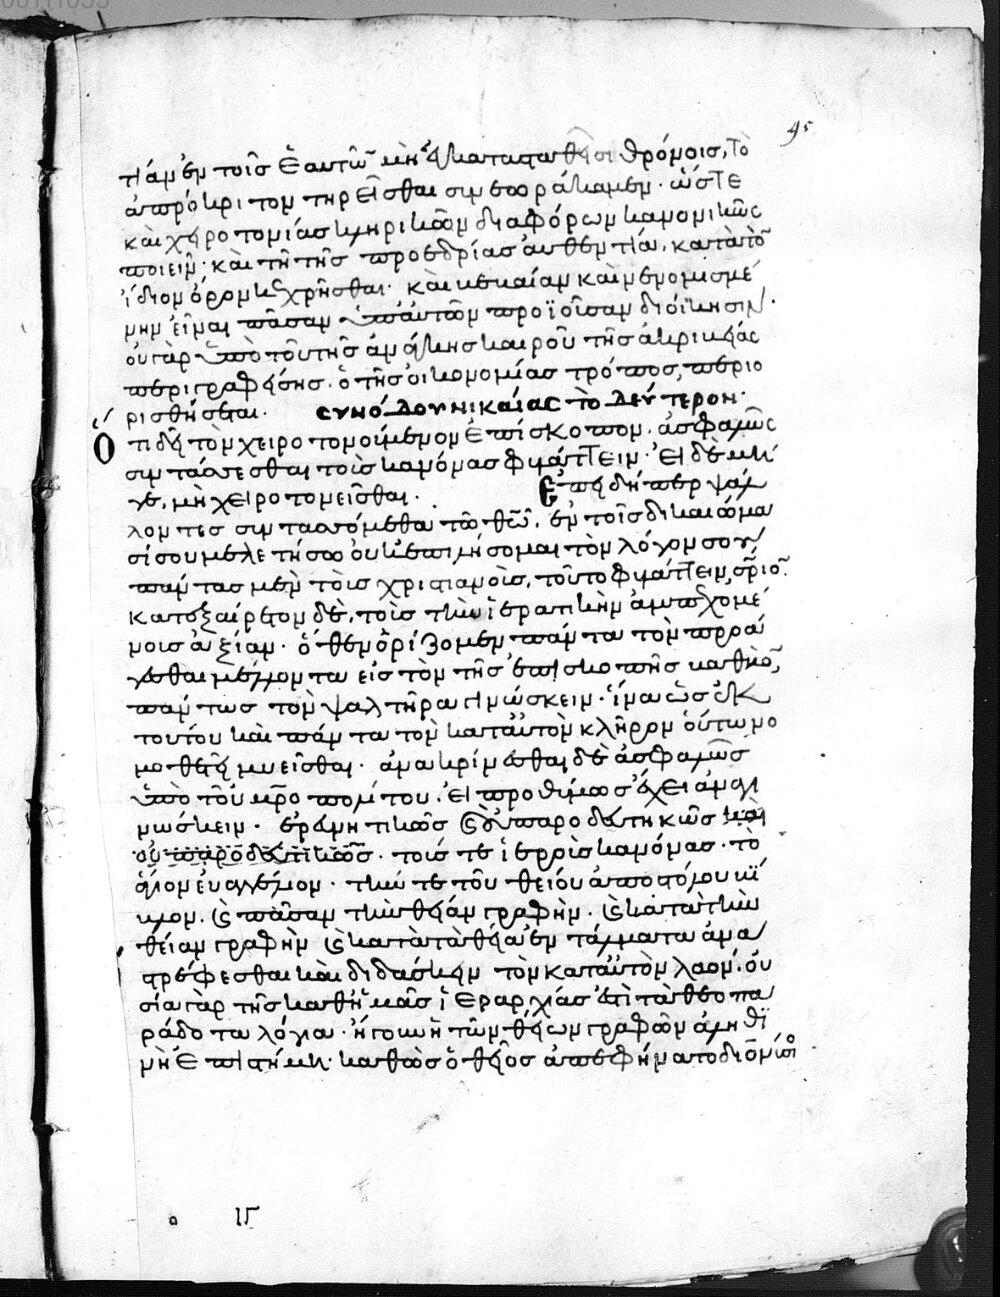 95
τίαν ἐν τοῖς ἑαυτῶν μὴ ἐγκαταπαθεῖσι θρόνοις, τὸ
ἀπρόκριτον τηρεῖσθαι συνεοράκαμεν· ὥστε
καὶ χειροτονίας κληρικῶν διαφόρων κανονικῶς
ποιεῖν· καὶ τῇ τῆς προεδρίας αὐθεντία, κατὰ τὸν
ἴδιον ὅρον κεχρῆσθαι· καὶ βεβαίαν καὶ νενομισμέ
νην εἶναι πᾶσαν ὑπ' αὐτῶν προϊοῦσαν διοίκησιν·
οὐ γὰρ ὑπὸ τοῦ τῆς ἀνάγκης καιροῦ τῆς ἀκριβείας
περιγραφείσης. ὁ τῆς οἰκονομίας τρόπος, περιο
ρισθήσεται· συνόδου νικαίας τὸ δεύτερον·
Ὅτι δεῖ τὸν χειροτονούμενον ἐπίσκοπον. ἀσφαλῶς
συντάσσεσθαι τοῖς κανόνας φυλάττειν· εἰ δὲ μή
γε, μὴ χειροτονεῖσθαι· Ἐπειδήπερ ψάλ
λοντες συντασσόμεθα τῶ θεῶ, ἐν τοῖς δικαιώμα
σί σου μελετήσω οὐκ ἐπιλήσομαι τὸν λόγον σου
πάντας μὲν τοῖς χριστιανοὶς, τοῦτο φυλάττειν, σριον.
κατεξαίρετον δὲ, τοὶς τὴν ἱερατικὴν ἀμπεχομέ
νοις ἀξίαν· ὅθεν ὁρίζομεν πάντα τὸν προά
γεσθαι μέλλοντα εἰς τὸν τῆς ἐπισκοπῆς βαθμὸν,
πάντως τὸν ψαλτῆρα γινώσκειν· ἵνα ὡς ἐκ
τούτου καὶ πάντα τὸν κατ' αὐτὸν κλῆρον οὕτω νο
μοθετῆ μυεῖσθαι· ἀνακρίνεσθαι δὲ ἀσφαλῶς
ὑπὸ τοῦ μητροπολίτου. εἰ προθύμως ἔχει ἀναγι
νώσκειν· ἐρευνητικῶς καὶ οὐ παροδευτηκῶς καὶ
οὐ παροδευτικῶς· τούς τε ἱεροὶς κανόνας· τὸ
ἅγιον εὐαγγέλιον· τήν τε τοῦ θείου ἀποστόλου βί
βλον. καὶ πᾶσαν τὴν θείαν γραφὴν. καὶ κατὰ τὴν
θείαν γραφὴν καὶ κατὰ τὰ θεῖα ἐντάλματα ἀνα
στρέφεσθαι καὶ διδάσκειν τὸν κατ' αὐτὸν λαόν. οὐ
σία γὰρ τῆς καθ' ἡμᾶς ἱεραρχίας ἐστὶ τὰ θεοπα
ράδοτα λόγια· ἤγουν ἡ τῶν θείων γραφῶν ἀληθι
νὴ ἐπιστήμη· καθὼς ὁ θεῖος ἀπεφήνατο διονύσιος
ιε